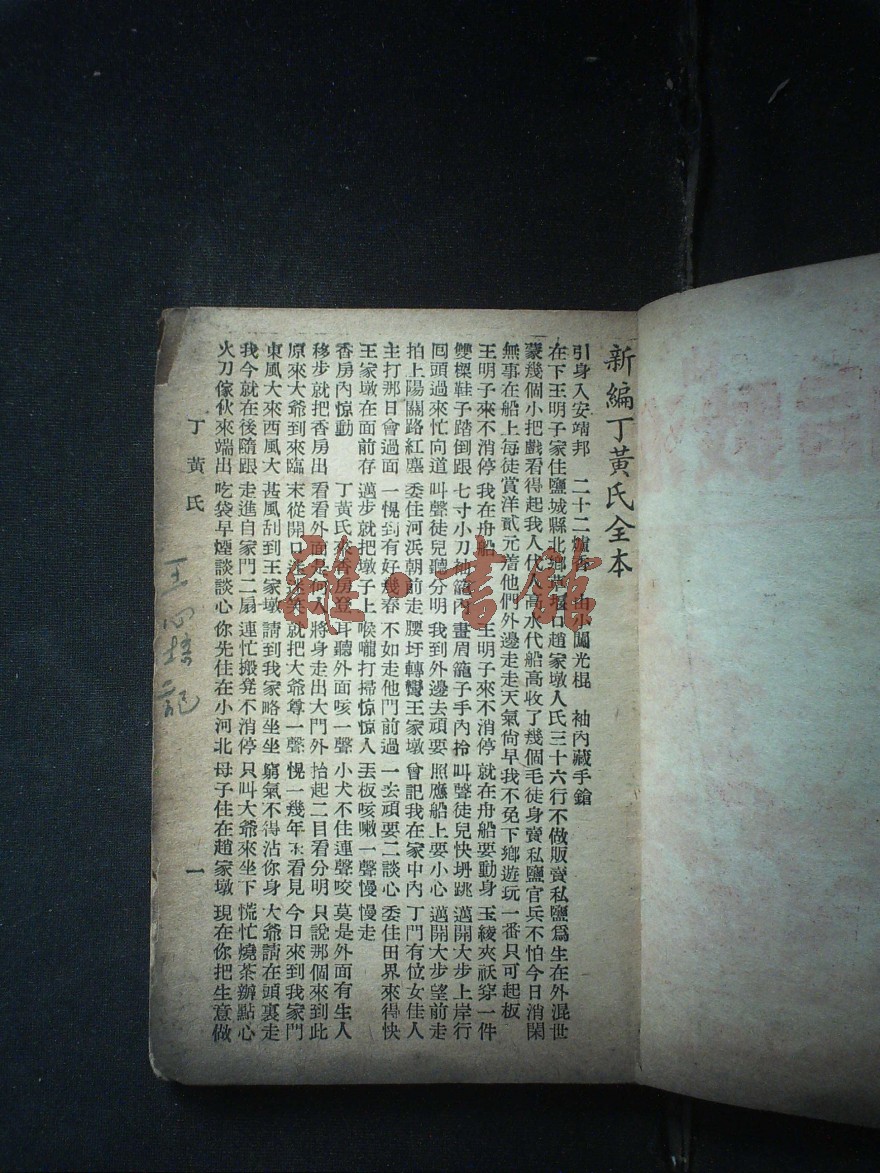 新編丁黃氏全本
引身入安靖邦 二十二爐香 由小闖光棍 袖內藏手鎗
在下王明子家住鹽城縣北鄉 口趙家墩人氏三十六行不做販賣私鹽爲生在外混世
蒙幾個小把戲看得起我人代人高水代船高收了幾個毛徒身賣私鹽官兵不怕今日消閑
無事在船上每徒賞洋貳元着他們外邊走走天氣尙早我不免下鄉遊玩一番只可起板
王明子來不消停 我在舟船 王明子來不消停 就在舟船要動身 玉綾夾祅穿一件
雙樑鞋子踏倒跟 七寸小刀 籠內 畫眉籠子手內拎 叫聲徒兒快坍跳 邁開大步上岸行
囘頭過來忙向道 叫聲徒兒聽分明 我到外邊去頑要 照應船上要小心 邁開大步望前走
拍上陽關路紅塵 委住河浜朝前走 腰圩轉彎王家墩 曾記我在家中內 丁門有位女佳人
主打那日會過面 一愰到有好幾春 不如走他門前過 一去頑要二談心 委住田界來得快
王家墩在面前存 邁步就把墩子上 喉嚨打掃惊惊人 丟板咳嗽一聲慢 慢走
香房內惊動 丁黃氏來香房登 耳聽外面咳一聲 小犬不住連聲咬 莫是外面有生人
移步就把香房出 看看外面是何人 將身走出大門外 抬起二目看分明 只說那個來到此
原來大爺到來臨 末從開口 笑 就把大爺尊一聲 愰一幾年 看見 今日來到我家門
東風大來西風大 甚風刮到王家墩 請到我家略坐坐 窮氣不得沾你身 大爺請在頭裏走
我今就在後隨跟 走進自家門二扇 連忙搬凳不消停 只叫大爺來坐下 慌忙燒茶辦點心
火刀傢伙來端出 吃袋早煙談談心 你先住在小河北 母子住在趙家墩 現在你把生意做
丁黃氏 一
王心培記
雅·書館